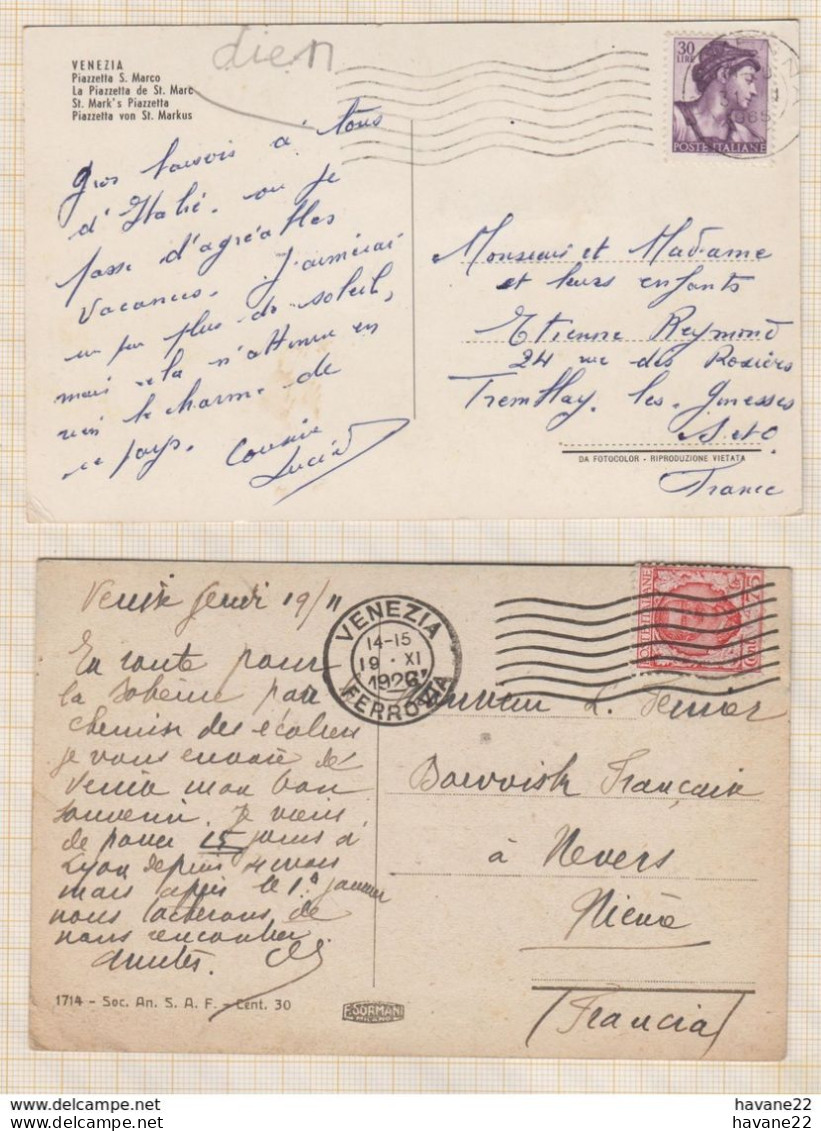 dien
VENEZIA
Piazzetta S. Marco
La Piazzetta de St. Marc
St. Mark's Piazzetta
Piazzetta von St. Markus
30
LIRE
1965
POSTE ITALIANE
Gros baisers à tous
d'Italie. ou je
passe d'agréables
vacances. J'aimerai
un peu plus de soleil,
mais cela n'attenue en
rien le charme de
ce pays. Cousine
Lucie
Monsieur et Madame
et leurs enfants
Etienne Reymond
24 rue des Rosiers
Tremblay. les. Gonesses
S. et O.
DA FOTOCOLOR - RIPRODUZIONE VIETATA
France
Venise Jeudi 19/11
VENEZIA
14-15
19 · XI
1926
FERROVIA
POSTE ITALIANE
Cent. 75
En route pour
la Bohême par
chemin des écoliers
je vous envoie de
Venise mon bon
souvenir. Je viens
de passer 15 jours à
Lyon depuis 4 mois
mais après le 1er janvier
nous tacherons de
nous rencontrer
Amitiés.
Française
à Nevers
Nièvre
(Francia)
1714 - Soc. An. S. A. F. - Cent. 30
F. SORMANI
MILANO
havane22
havane22
havane22
havane22